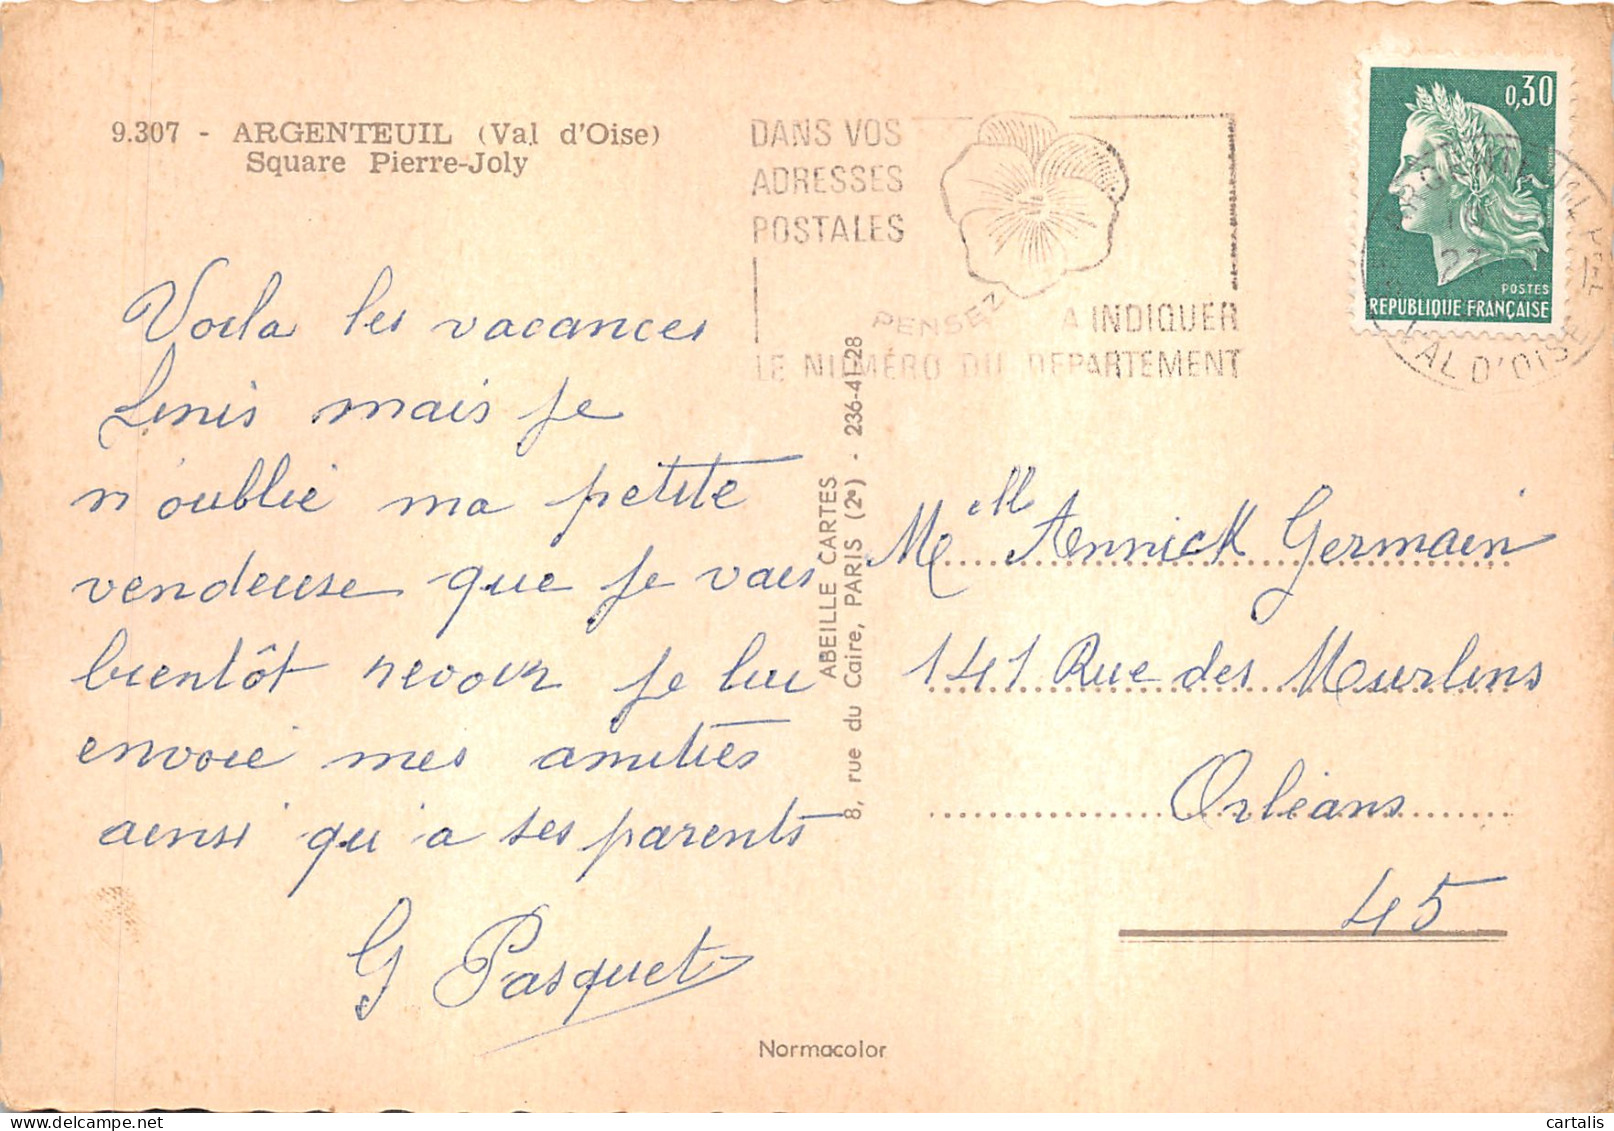 9.307 - ARGENTEUIL (Val d'Oise)
Square Pierre-Joly
DANS VOS
ADRESSES
POSTALES
PENSEZ A INDIQUER
LE NUMÉRO DU DEPARTEMENT
0,30
POSTES
REPUBLIQUE FRANÇAISE
VAL D'OISE
Voila les vacances
finis mais je
n'oublie ma petite
vendeuse que je vais
bientôt revoir je lui
envoie mes amitiés
ainsi qu'a ses parents
G Pasquet
ABEILLE CARTES
8, rue du Caire, PARIS (2e) - 236-41-28
Mell Annick Germain
141 Rue des Murlins
Orléans
45
Normacolor
cartalis